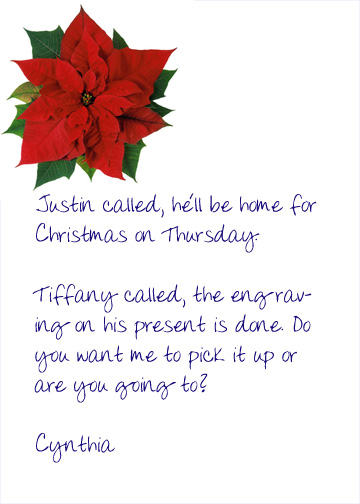 Justin called, he'll be home for
Christmas on Thursday.
Tiffany called, the engrav-
ing on his present is done. Do
you want me to pick it up or
are you going to?
Cynthia